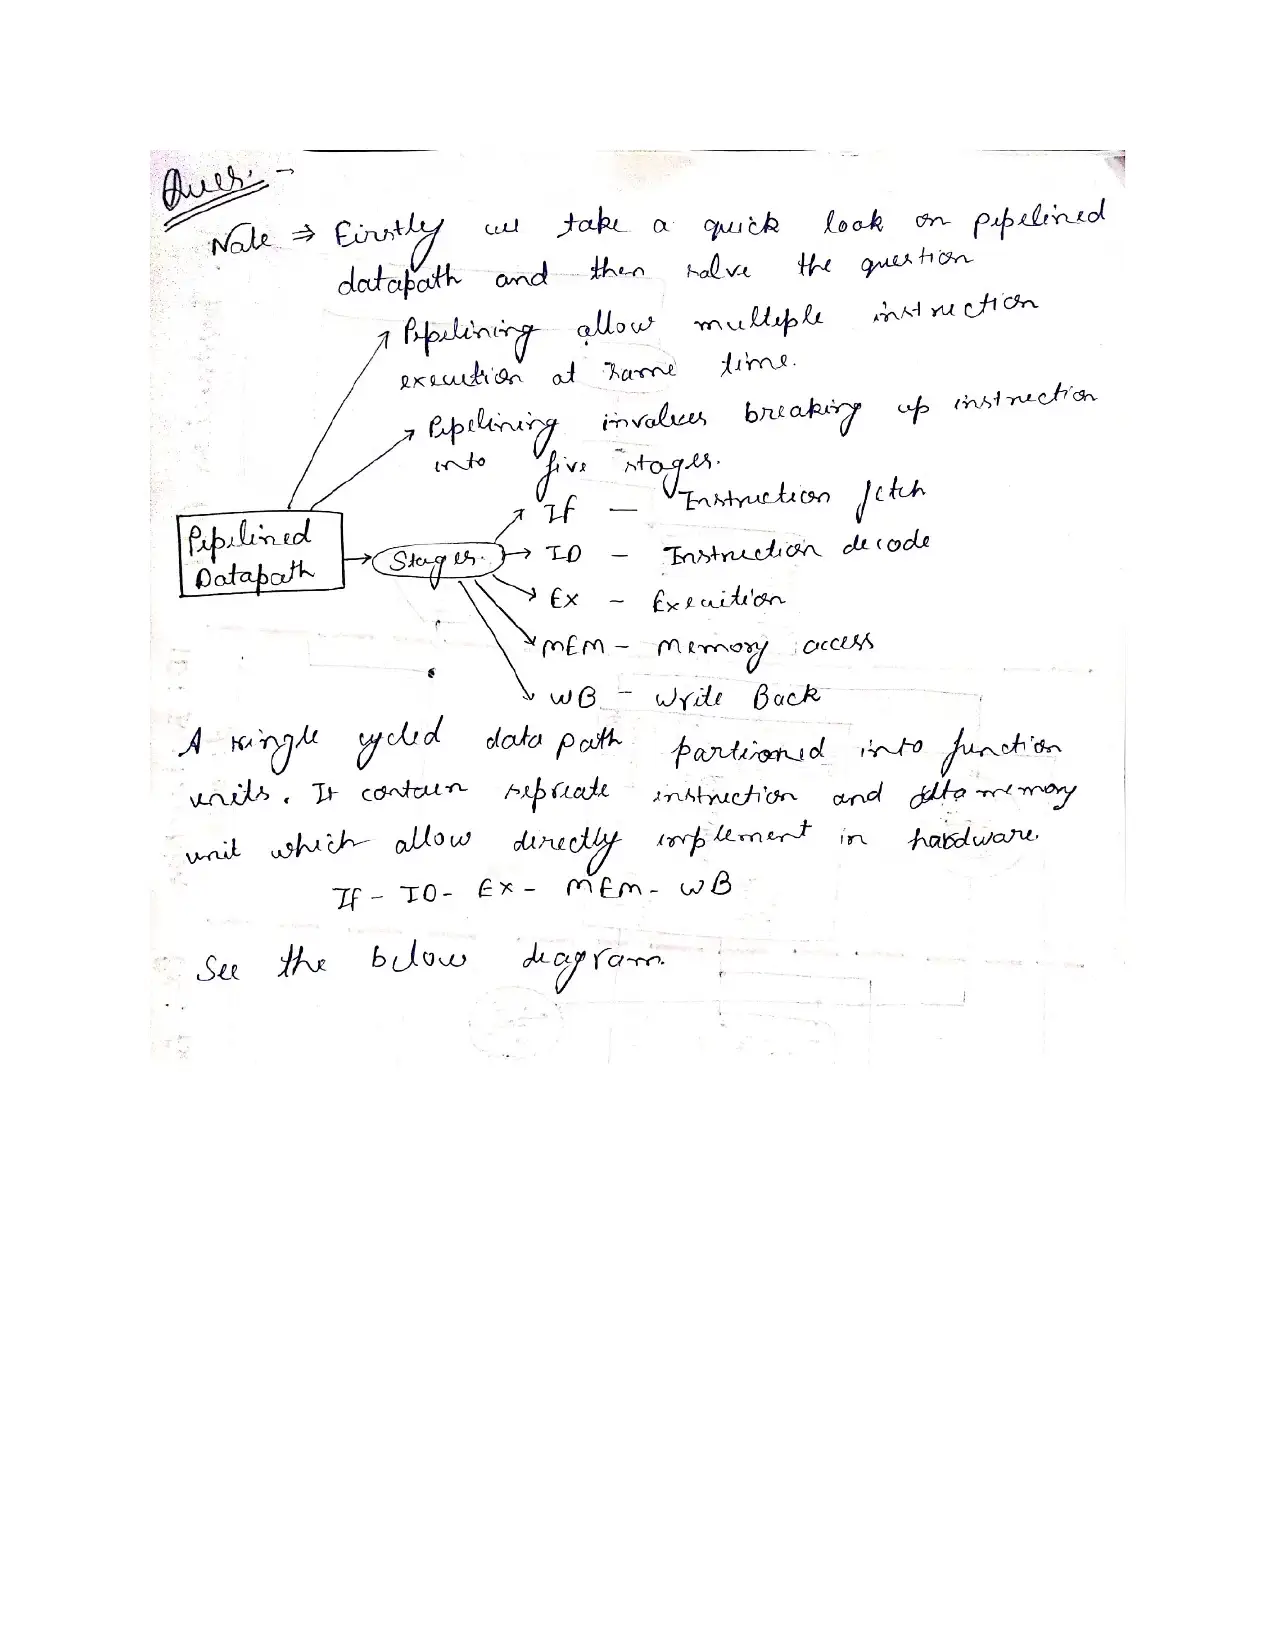 Ques. -
Note ⇒ Firstly we take a quick look on pipelined
datapath and then solve the question
→ Pipelining allow multiple instruction
execution at same time.
→ Pipelining involves breaking up instruction
into five stages.
IF — Instruction fetch
Pipelined
Datapath → Stages. → ID - Instruction decode
EX - Execution
MEM - Memory access
WB - Write Back
A single cycled data path partioned into function
units. It contain sepreate instruction and data memory
unit which allow directly implement in hardware.
IF - ID - EX - MEM - WB
See the below diagram.